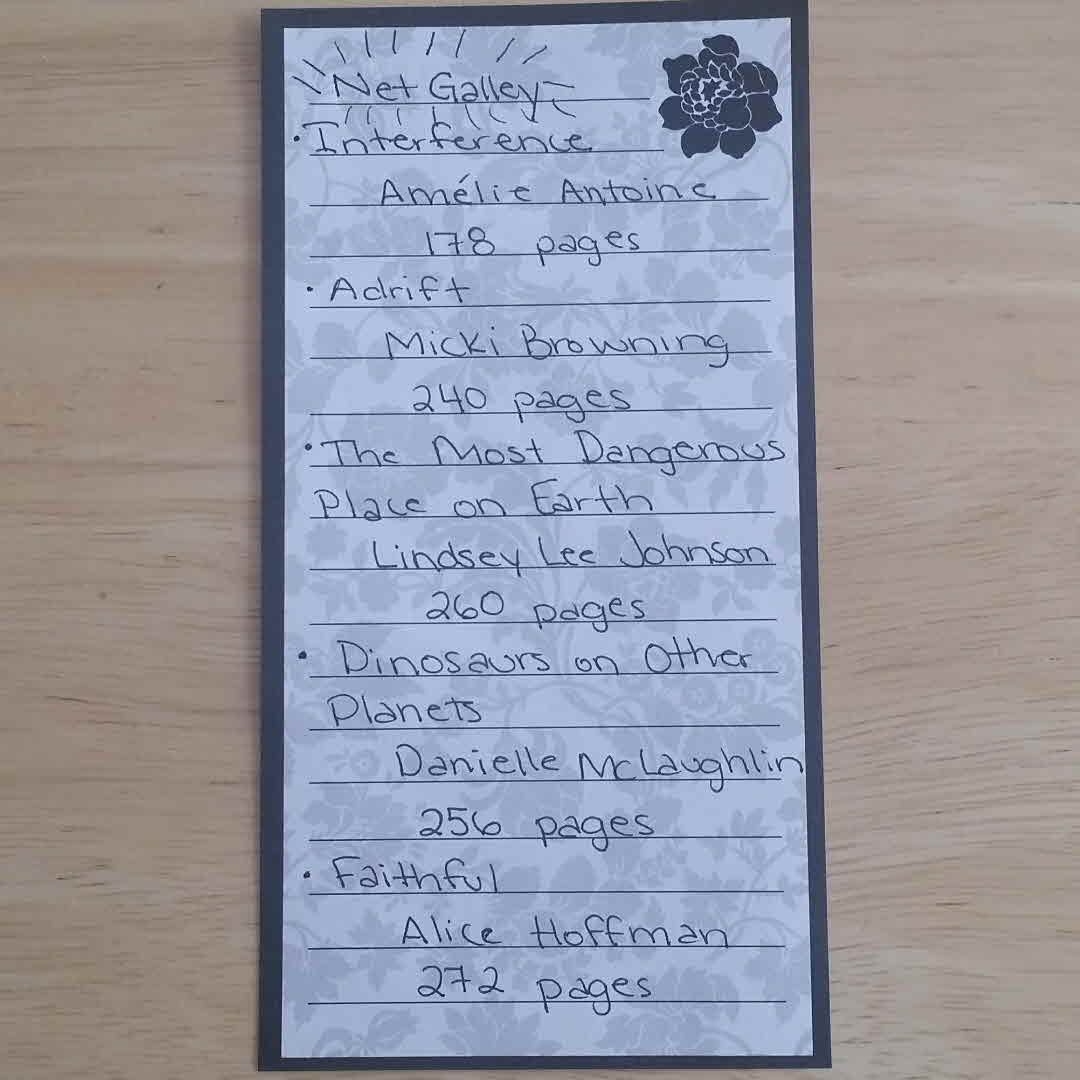 Net Galley
• Interference
Amélie Antoine
178 pages
• Adrift
Micki Browning
240 pages
• The Most Dangerous
Place on Earth
Lindsey Lee Johnson
260 pages
• Dinosaurs on Other
Planets
Danielle McLaughlin
256 pages
• Faithful
Alice Hoffman
272 pages